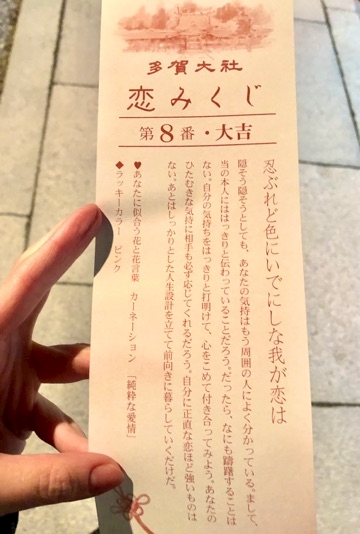 多賀大社
恋みくじ
第8番・大吉
忍ぶれど色にいでにしな我が恋は
隠そう隠そうとしても、あなたの気持はもう周囲の人によく分かっている。まして、
当の本人にははっきりと伝わっていることだろう。だったら、なにも躊躇することは
ない。自分の気持ちをはっきりと打明けて、心をこめて付き合ってみよう。あなたの
ひたむきな気持に相手も必ず応じてくれるだろう。自分に正直な恋ほど強いものは
ない。あとはしっかりとした人生設計を立てて前向きに暮らしていくだけだ。
♥あなたに似合う花と花言葉 カーネーション 「純粋な愛情」
◆ラッキーカラー ピンク